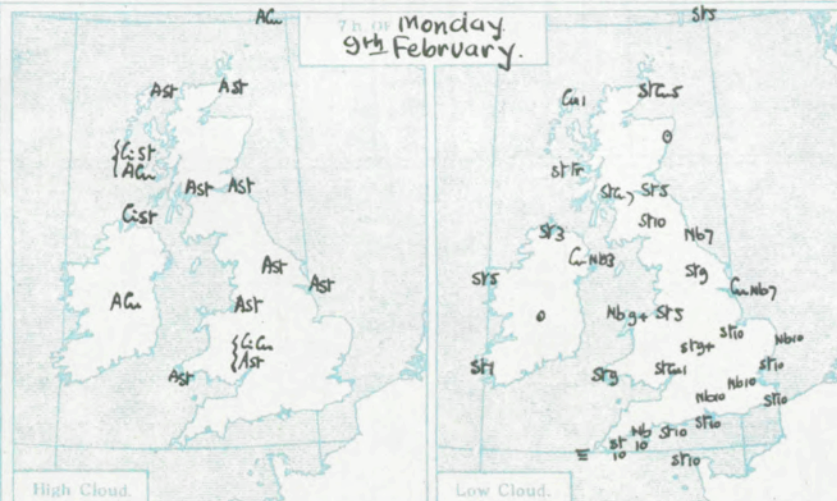 7 h. OF Monday
9th February.
ACu
Ast
Ast
{CiSt
ACu
Ast
Ast
CiSt
ACu
Ast
Ast
Ast
{CiCu
Ast
Ast
High Cloud.
St5
Cu1
StCu5
0
StFr
StCu7
St5
St10
Nb7
St3
CuNb3
St9
CuNb7
St5
0
Nb9+
St5
St10
Nb10
St9+
St1
St9
StCu1
St10
Nb10
Nb10
St10
St10
Nb
10
St10
St
10
St10
Low Cloud.